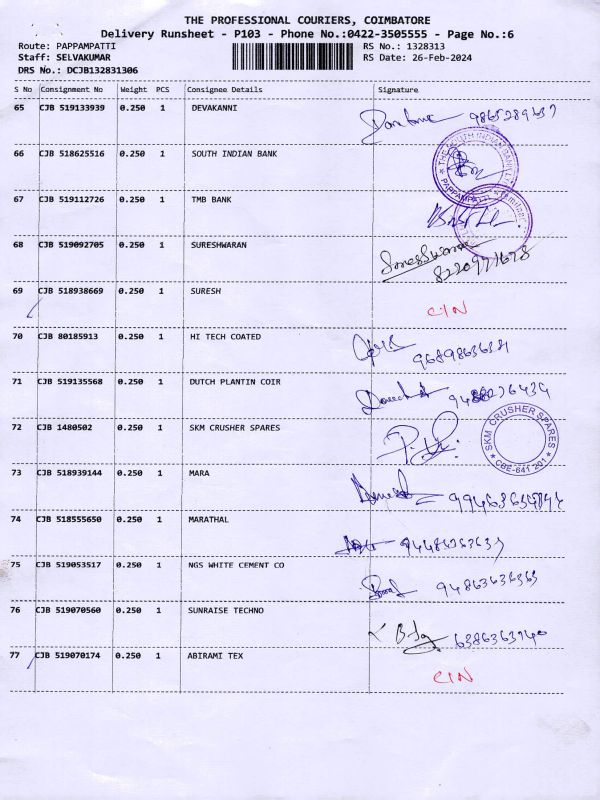 THE PROFESSIONAL COURIERS, COIMBATORE
Delivery Runsheet - P103 - Phone No.:0422-3505555 - Page No.:6
Route: PAPPAMPATTI RS No.: 1328313
Staff: SELVAKUMAR RS Date: 26-Feb-2024
DRS No.: DCJB132831306
S No Consignment No Weight PCS Consignee Details Signature
65 CJB 519133939 0.250 1 DEVAKANNI
66 CJB 518625516 0.250 1 SOUTH INDIAN BANK
THE SOUTH INDIAN BANK LTD
PAPPAMPATTI
67 CJB 519112726 0.250 1 TMB BANK
68 CJB 519092705 0.250 1 SURESHWARAN
Sureshwaran
69 CJB 518938669 0.250 1 SURESH C/N
70 CJB 80185913 0.250 1 HI TECH COATED
71 CJB 519135568 0.250 1 DUTCH PLANTIN COIR
72 CJB 1480502 0.250 1 SKM CRUSHER SPARES
SKM CRUSHER SPARES
CBE-641 201
73 CJB 518939144 0.250 1 MARA
74 CJB 518555650 0.250 1 MARATHAL
75 CJB 519053517 0.250 1 NGS WHITE CEMENT CO
76 CJB 519070560 0.250 1 SUNRAISE TECHNO
77 CJB 519070174 0.250 1 ABIRAMI TEX C/N